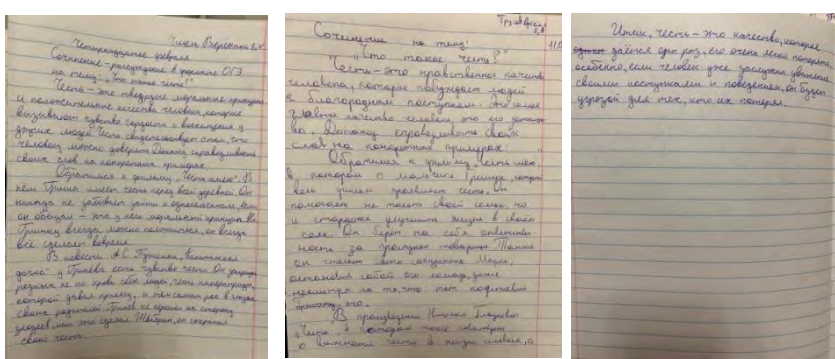 Чизель Вероника 8
Четырнадцатое февраля
Сочинение-рассуждение в формате ОГЭ
на тему: "Что такое честь?"
Честь - это твёрдые моральные принципы
и положительные качества человека, которые
вызывают чувство гордости и восхищения у
других людей. Честь свидетельствует о том, что
человеку можно доверять. Докажу справедливость
своих слов на конкретных примерах.
Обратимся к фильму "Честь имею". В
нём Гриша имеет честь перед всей деревней. Он
никогда не забывает зайти к односельчанам, если
он обещал - это у него моральный принцип. На
Гришу всегда можно положиться, он всегда
всё сделает вовремя.
В повести А.С. Пушкина "Капитанская
дочка" у Гринёва есть чувство чести. Он защищал
родных не по крови себе людей, честь императрицы,
которой давал присягу, и тем самым рос в глазах
своих родителей. Гринёв не перешёл на сторону
злодеев, как это сделал Швабрин, он сохранил
свою честь.
Сочинение на тему:
"Что такое честь?"
Честь - это нравственное качество
человека, которое побуждает людей
к благородным поступкам. Это самое
главное качество человека, это его
Докажу справедливость своих
слов на конкретных примерах:
Обратимся к фильму "Честь имею",
в котором о мальчике Грише, который
всем учит проявлять честь. Он
помогает не только своей семье, но
и старается улучшить жизнь в своём
селе. Он берёт на себя ответствен-
ность за проступок товарища. Также
он спасает своего
остановив собой его лошадь, даже
несмотря на то, что тот подставил
его.
В произведении Николая Богданова
"Честь", в котором также говорится
о важности чести в жизни человека, а
Итак, честь - это качество, которое
даётся один раз, его очень легко потерять,
особенно, если человек уже заслужил уважение
своими поступками и поведением, он будет
угрозой для тех, кто их потерял.